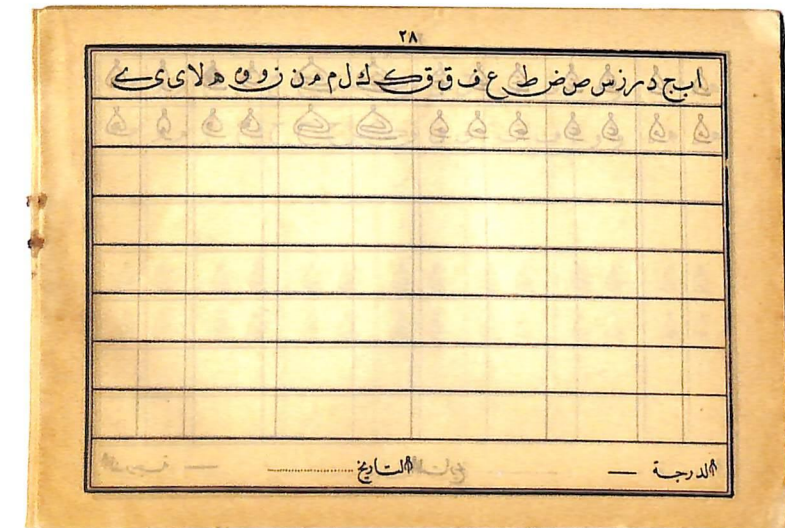 ٢٨
ا ب ج د ر ز س ص ض ط ع ف ق ق ك ك ل م م ن ن ز و و ه ه لا ى ى ے
الدرجة — التاريخ ............